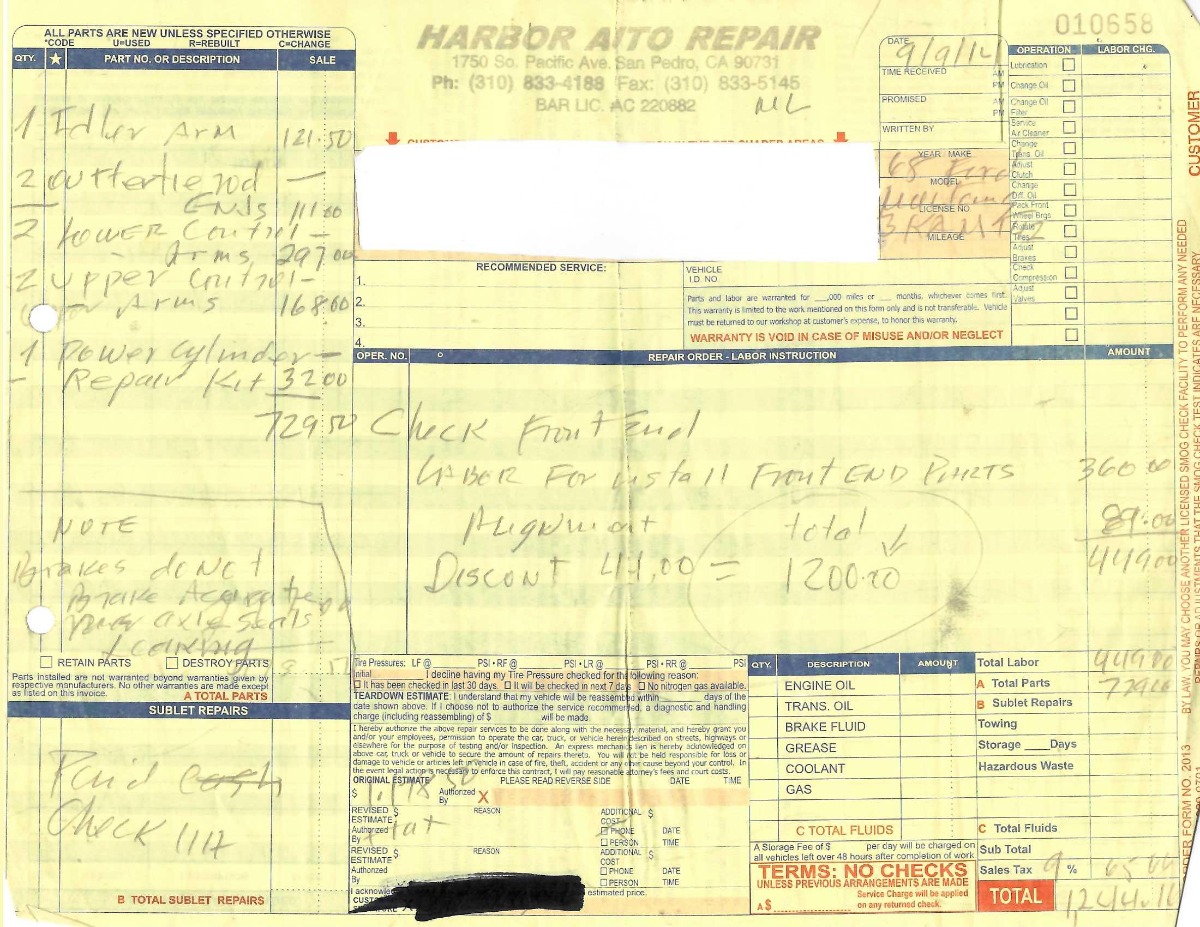 ALL PARTS ARE NEW UNLESS SPECIFIED OTHERWISE
*CODE U=USED R=REBUILT C=CHANGE
QTY. ★ PART NO. OR DESCRIPTION SALE
1 Idler Arm 121.50
2 outtertierod —
ENDS 111.00
2 LOWER Control —
Arms 297.00
2 Upper Control —
Arms 168.00
1 Power Cylinder —
Repair Kit 32.00
729.50
NOTE
Brakes do NOT
Brake
axle seals
RETAIN PARTS DESTROY PARTS
Parts installed are not warranted beyond warranties given by
respective manufacturers. No other warranties are made except
as listed on this invoice.
A TOTAL PARTS
SUBLET REPAIRS
Paid cash
Check 1117
B TOTAL SUBLET REPAIRS
HARBOR AUTO REPAIR
1750 So. Pacific Ave. San Pedro, CA 90731
Ph: (310) 833-4188 Fax: (310) 833-5145
BAR LIC. AC 220882
010658
DATE 9/9/14
TIME RECEIVED AM PM
PROMISED AM PM
WRITTEN BY
YEAR - MAKE
68 Ford
MODEL
Mustang
LICENSE NO
MILEAGE
OPERATION LABOR CHG.
Lubrication
Change Oil
Change Oil Filter
Service Air Cleaner
Change Trans. Oil
Adjust Clutch
Change Diff. Oil
Pack Front Wheel Brgs.
Rotate Tires
Adjust Brakes
Check Compression
Adjust Valves
RECOMMENDED SERVICE:
1.
2.
3.
4.
VEHICLE
I.D. NO
Parts and labor are warranted for ___,000 miles or ___ months, whichever comes first.
This warranty is limited to the work mentioned on this form only and is not transferable. Vehicle
must be returned to our workshop at customer's expense, to honor this warranty.
WARRANTY IS VOID IN CASE OF MISUSE AND/OR NEGLECT
OPER. NO. REPAIR ORDER - LABOR INSTRUCTION AMOUNT
Check Front End
LABOR FOR install FRONT END PARTS 360.00
Alignment 89.00
449.00
total
DISCONT 44.00 = 1200.00
Tire Pressures: LF @ PSI • RF @ PSI • LR @ PSI • RR @ PSI
Initial I decline having my Tire Pressure checked for the following reason:
It has been checked in last 30 days. It will be checked in next 7 days No nitrogen gas available.
TEARDOWN ESTIMATE: I understand that my vehicle will be reassembled within days of the
date shown above. If I choose not to authorize the service recommended, a diagnostic and handling
charge (including reassembling) of $ will be made.
I hereby authorize the above repair services to be done along with the necessary material, and hereby grant you
and/or your employees, permission to operate the car, truck, or vehicle herein described on streets, highways or
elsewhere for the purpose of testing and/or inspection. An express mechanics lien is hereby acknowledged on
above car, truck or vehicle to secure the amount of repairs thereto. You will not be held responsible for loss or
damage to vehicle or articles left in vehicle in case of fire, theft, accident or any other cause beyond your control. In
the event legal action is necessary to enforce this contract, I will pay reasonable attorney's fees and court costs.
ORIGINAL ESTIMATE PLEASE READ REVERSE SIDE DATE TIME
$ Authorized By X
REVISED ESTIMATE $ REASON ADDITIONAL COST $
Authorized By PHONE DATE
PERSON TIME
REVISED ESTIMATE $ REASON ADDITIONAL COST $
Authorized By PHONE DATE
PERSON TIME
estimated price.
QTY. DESCRIPTION AMOUNT
ENGINE OIL
TRANS. OIL
BRAKE FLUID
GREASE
COOLANT
GAS
C TOTAL FLUIDS
A Storage Fee of $ per day will be charged on
all vehicles left over 48 hours after completion of work
TERMS: NO CHECKS
UNLESS PREVIOUS ARRANGEMENTS ARE MADE
Service Charge will be applied
on any returned check.
A $
Total Labor 449.00
A Total Parts
B Sublet Repairs
Towing
Storage ____Days
Hazardous Waste
C Total Fluids
Sub Total
Sales Tax 9 %
TOTAL 1,244.16
CUSTOMER
BY LAW, YOU MAY CHOOSE ANOTHER LICENSED SMOG CHECK FACILITY TO PERFORM ANY NEEDED